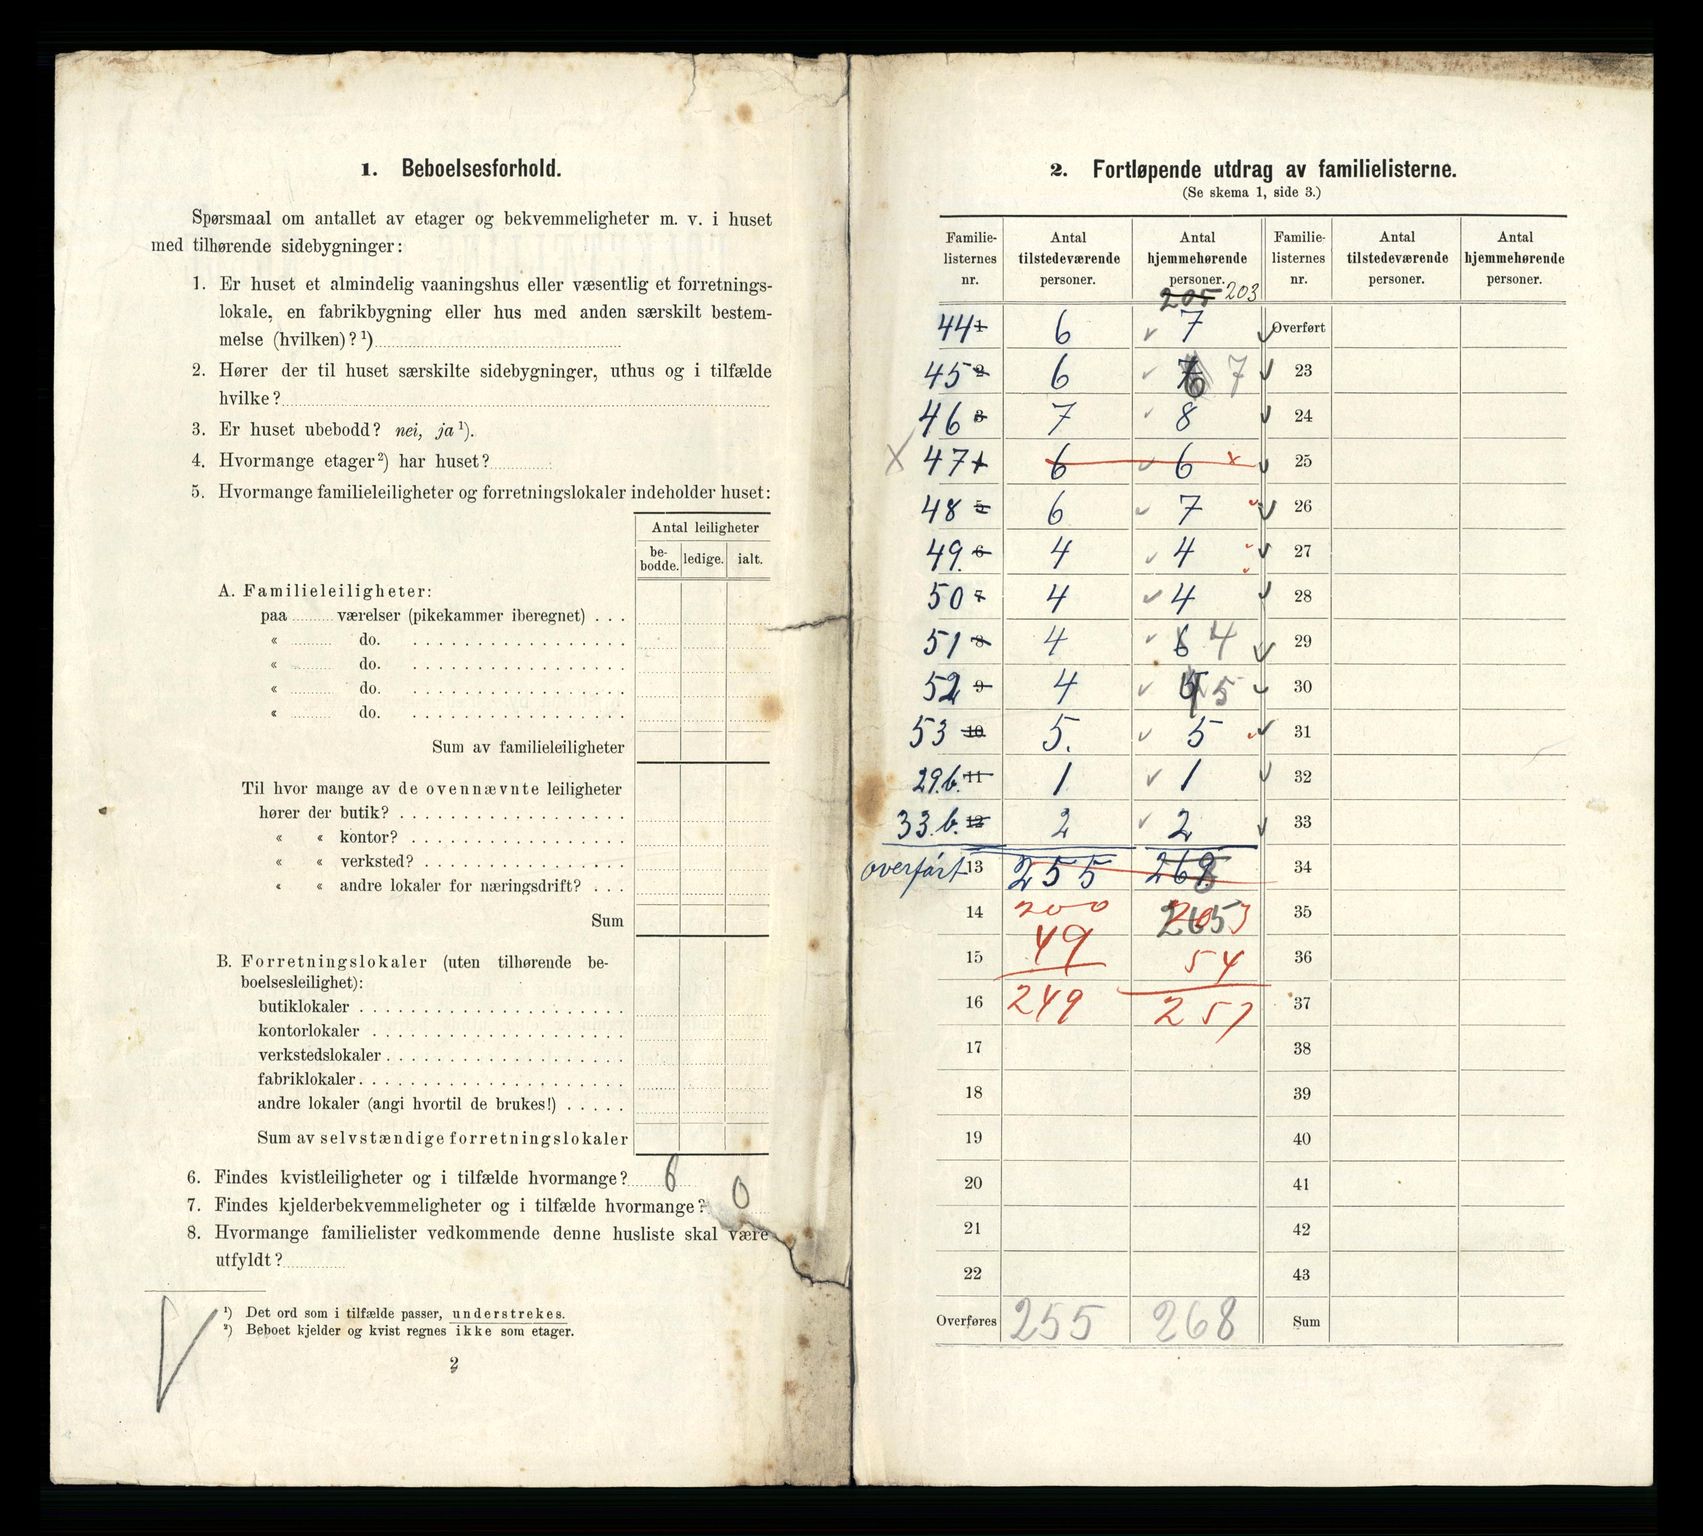 1. Beboelsesforhold.
Spørsmaal om antallet av etager og bekvemmeligheter m. v. i huset
med tilhørende sidebygninger:
1. Er huset et almindelig vaaningshus eller væsentlig et forretnings-
lokale, en fabrikbygning eller hus med anden særskilt bestem-
melse (hvilken)? ¹)
2. Hører der til huset særskilte sidebygninger, uthus og i tilfælde
hvilke?
3. Er huset ubebodd? nei, ja ¹).
4. Hvormange etager ²) har huset?
5. Hvormange familieleiligheter og forretningslokaler indeholder huset:
Antal leiligheter
be-
bodde. ledige. ialt.
A. Familieleiligheter:
paa ........ værelser (pikekammer iberegnet) . . .
« ........ do. . . . . . . . . . . . . . . . . .
« ........ do. . . . . . . . . . . . . . . . . .
« ........ do. . . . . . . . . . . . . . . . . .
« ........ do. . . . . . . . . . . . . . . . . .
Sum av familieleiligheter
Til hvor mange av de ovennævnte leiligheter
hører der butik? . . . . . . . . . . . . . . . . .
« « kontor? . . . . . . . . . . . . . . . .
« « verksted? . . . . . . . . . . . . . . .
« « andre lokaler for næringsdrift? . . .
Sum
B. Forretningslokaler (uten tilhørende be-
boelsesleilighet):
butiklokaler . . . . . . . . . . . . . . . . . . . .
kontorlokaler . . . . . . . . . . . . . . . . . . .
verkstedslokaler . . . . . . . . . . . . . . . . . .
fabriklokaler . . . . . . . . . . . . . . . . . . . .
andre lokaler (angi hvortil de brukes!) . . . . .
Sum av selvstændige forretningslokaler
6. Findes kvistleiligheter og i tilfælde hvormange? 6
7. Findes kjelderbekvemmeligheter og i tilfælde hvormange? 0
8. Hvormange familielister vedkommende denne husliste skal være
utfyldt?
¹) Det ord som i tilfælde passer, understrekes.
²) Beboet kjelder og kvist regnes ikke som etager.
2
2. Fortløpende utdrag av familielisterne.
(Se skema 1, side 3.)
Familie- Antal Antal Familie- Antal Antal
listernes tilstedeværende hjemmehørende listernes tilstedeværende hjemmehørende
nr. personer. personer. nr. personer. personer.
205 203
44 1 6 7 Overført
45 2 6 7 23
46 3 7 8 24
x 47 4 6 6 x 25
48 5 6 7 26
49. 6 4 4 27
50 7 4 4 28
51 8 4 6 4 29
52 9 4 5 30
53 10 5. 5 31
29.b. 11 1 1 32
33.b. 12 2 2 33
overført 13 255 268 34
14 200 203 35
15 49 54 36
16 249 257 37
17 38
18 39
19 40
20 41
21 42
22 43
Overføres 255 268 Sum